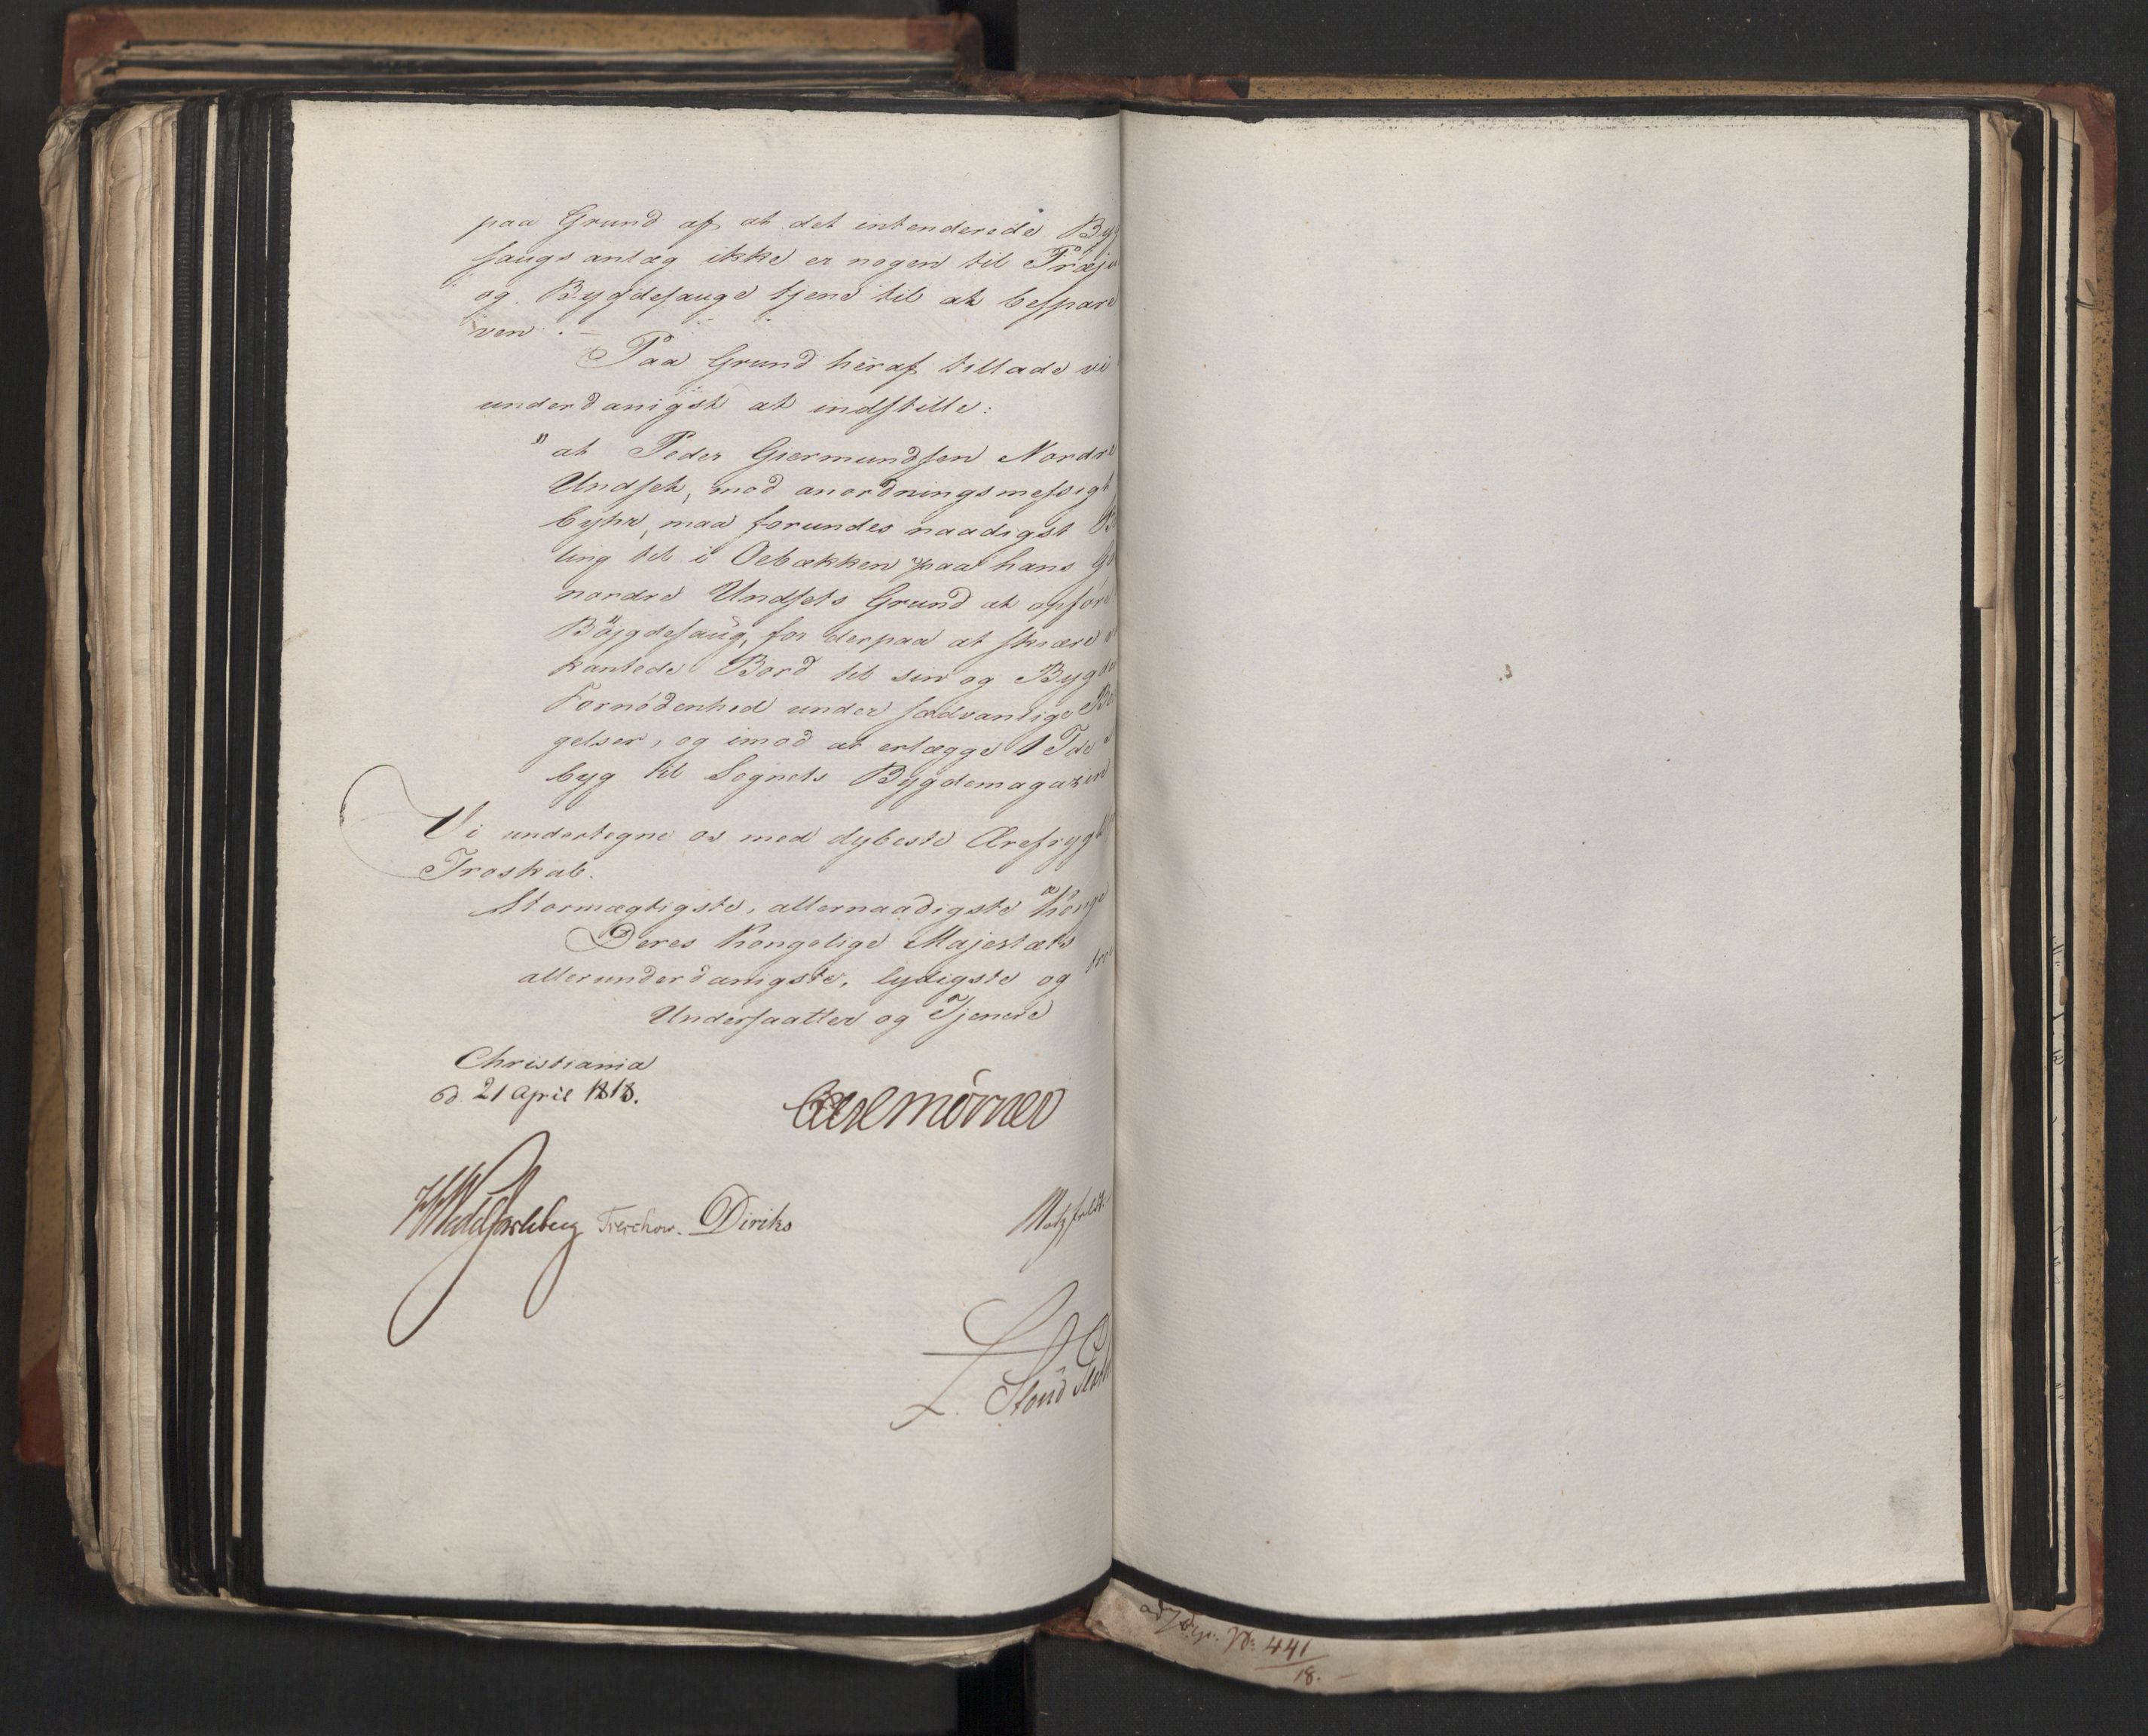 paa Grund af at det intenderede Byg
saugs anlæg ikke er nogen til Præju
og Bygdesauge tjene til at bespare
ven. —
Paa Grund heraf tillade vi
underdanigst at indstille:
"at Peder Giermundsen Nordre
Undset, mod anordningsmessigt
byhr, maa forundes naadigst Be
ling til i Aebækken paa hans G
nordre Undsets Grund at opføre
Bøjgdesaug, for derpaa at skiære
kantede Bord til sin og Bygde
Fornødenhed under sædvanlige Be
gelser, og imod at erlægge 1 Tde
byg til Sognets Bygdemagazin
Vi undertegne os med dybeste Ærefrygt
Troskab.
Stormægtigste, allernaadigste Konge
Deres Kongelige Majestæts
allerunderdanigste, lydigste og tro
Undersaatter og Tjenere
Christiania
d. 21 April 1818.
Carl Mörner
HWedelJarlsberg Treschow. Diriks Motzfeldt.
L. Stoud Plat
441
18. —